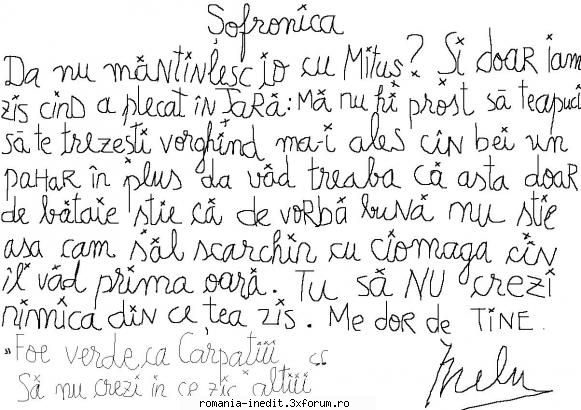 Șofronica
Da nu mântinlesc io cu Mituș? Și doar iam
zis cînd a plecat în Țară: Mă nu fi prost să teapuci
să te trezești vorghind ma-i ales cîn bei un
pahar în plus da văd treaba că asta doar
de bătaie știe că de vorbă buvă nu știe
așa cam săl scarchin cu ciomaga cîn
îl văd prima oară. Tu să NU crezi
nimica din ce țea zis. Me dor de TINE.
"Foe verde, ca Carpatiii
Să nu crezi în ce zic altiii"
romania-inedit.3xforum.ro